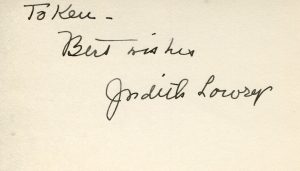 To Ken -
Best wishes
Judith Lowry